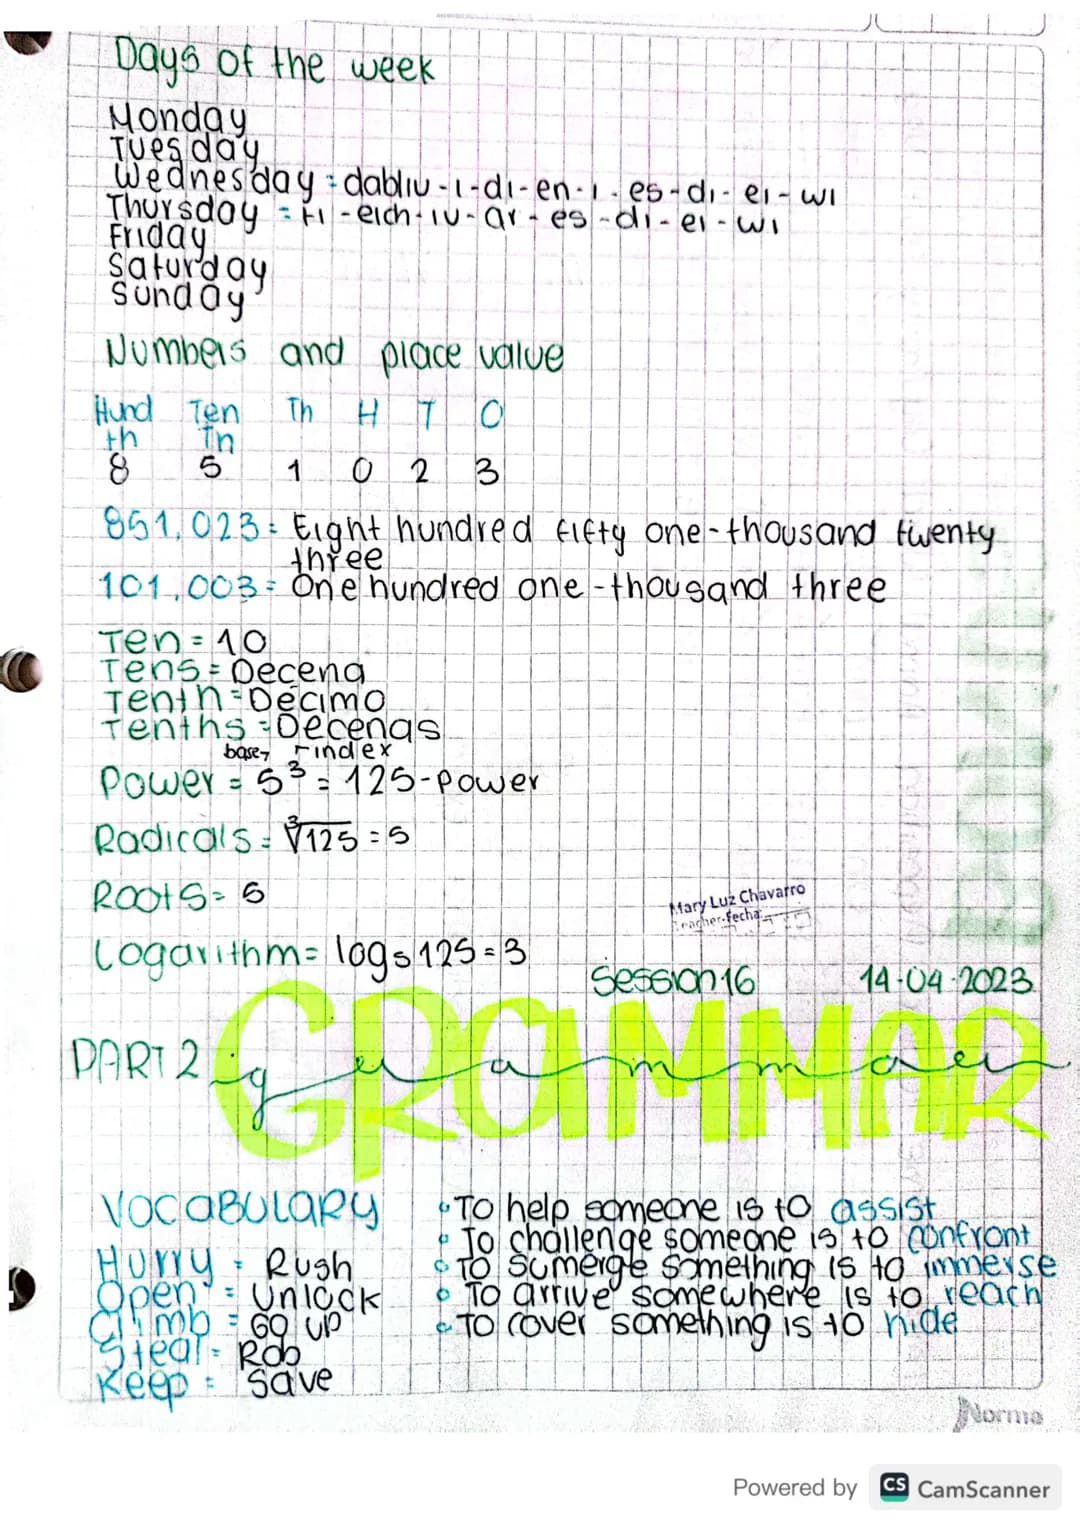 Days of the week
Monday
Tuesday
Wednesday = dabliu-i-di-en-i-es-di-ei-wi
Thursday = ti-eich-iu-ar-es-di-ei-wi
Friday
Saturday
Sunday
Numbers and place value
Hund Ten Th H T O
th Th
8 5 1 0 2 3
851,023 = Eight hundred fifty one-thousand twenty
three
101,003 = One hundred one-thousand three
Ten = 10
Tens = Decena
Tenth = Décimo
Tenths = Decenas
base index
Power = 5³ = 125-power
Radicals = ∛125 = 5
Roots = 5
Mary Luz Chavarro
Teacher-Fecha:
Logarithm = log₅125 = 3
Session 16 14-04-2023
PART 2 GRAMMAR
grammar
VOCABULARY
Hurry = Rush
Open = Unlock
Climb = Go up
Steal = Rob
Keep = Save
• To help someone is to assist
• To challenge someone is to confront
• To sumerge something is to immerse
• To arrive somewhere is to reach
• To cover something is to hide
Norma
Powered by CS CamScanner